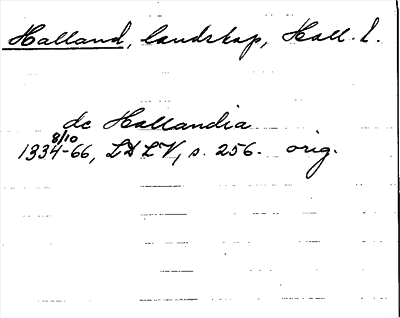 Halland, landskap, Hall. l.
de Hallandia
8/10
1334-66, LDLV, s. 256. orig.